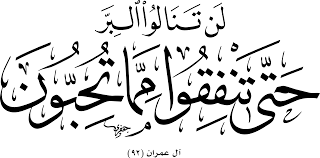 لَن تَنَالُوا۟ ٱلۡبِرَّ
حَتَّىٰ تُنفِقُوا مِمَّا تُحِبُّونَ
آل عمران (٩٢)